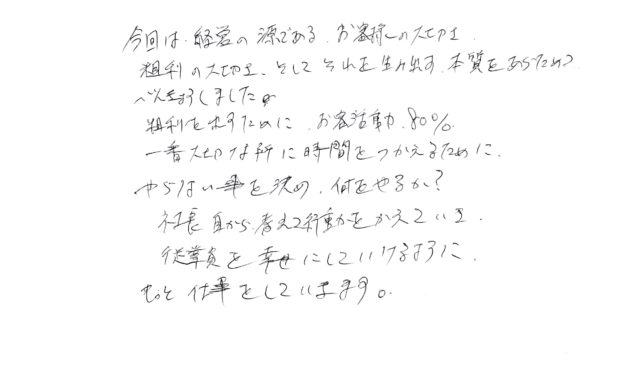 今回は、経営の源である、お客様の大切さ、
粗利の大切さ、そしてそれを生み出す、本質をあらためて
べんきょうしました。
粗利を出すために、お客活動、80%
一番大切な所に時間をつかえるために、
やらない事を決め、何をやるか?
社長自から考えて行動をかえていき、
従業員を幸せにしていけるように、
もっと仕事をしていきます。